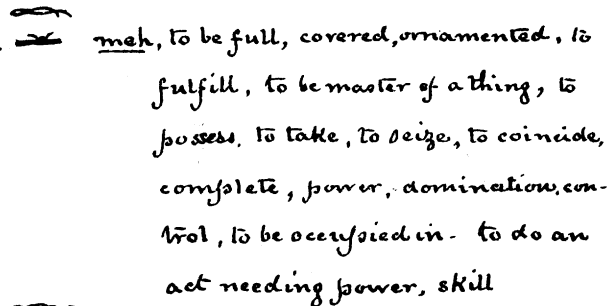 meh, to be full, covered, ornamented, to
fulfill, to be master of a thing, to
possess, to take, to seize, to coincide,
complete, power, domination, con-
trol, to be occupied in - to do an
act needing power, skill